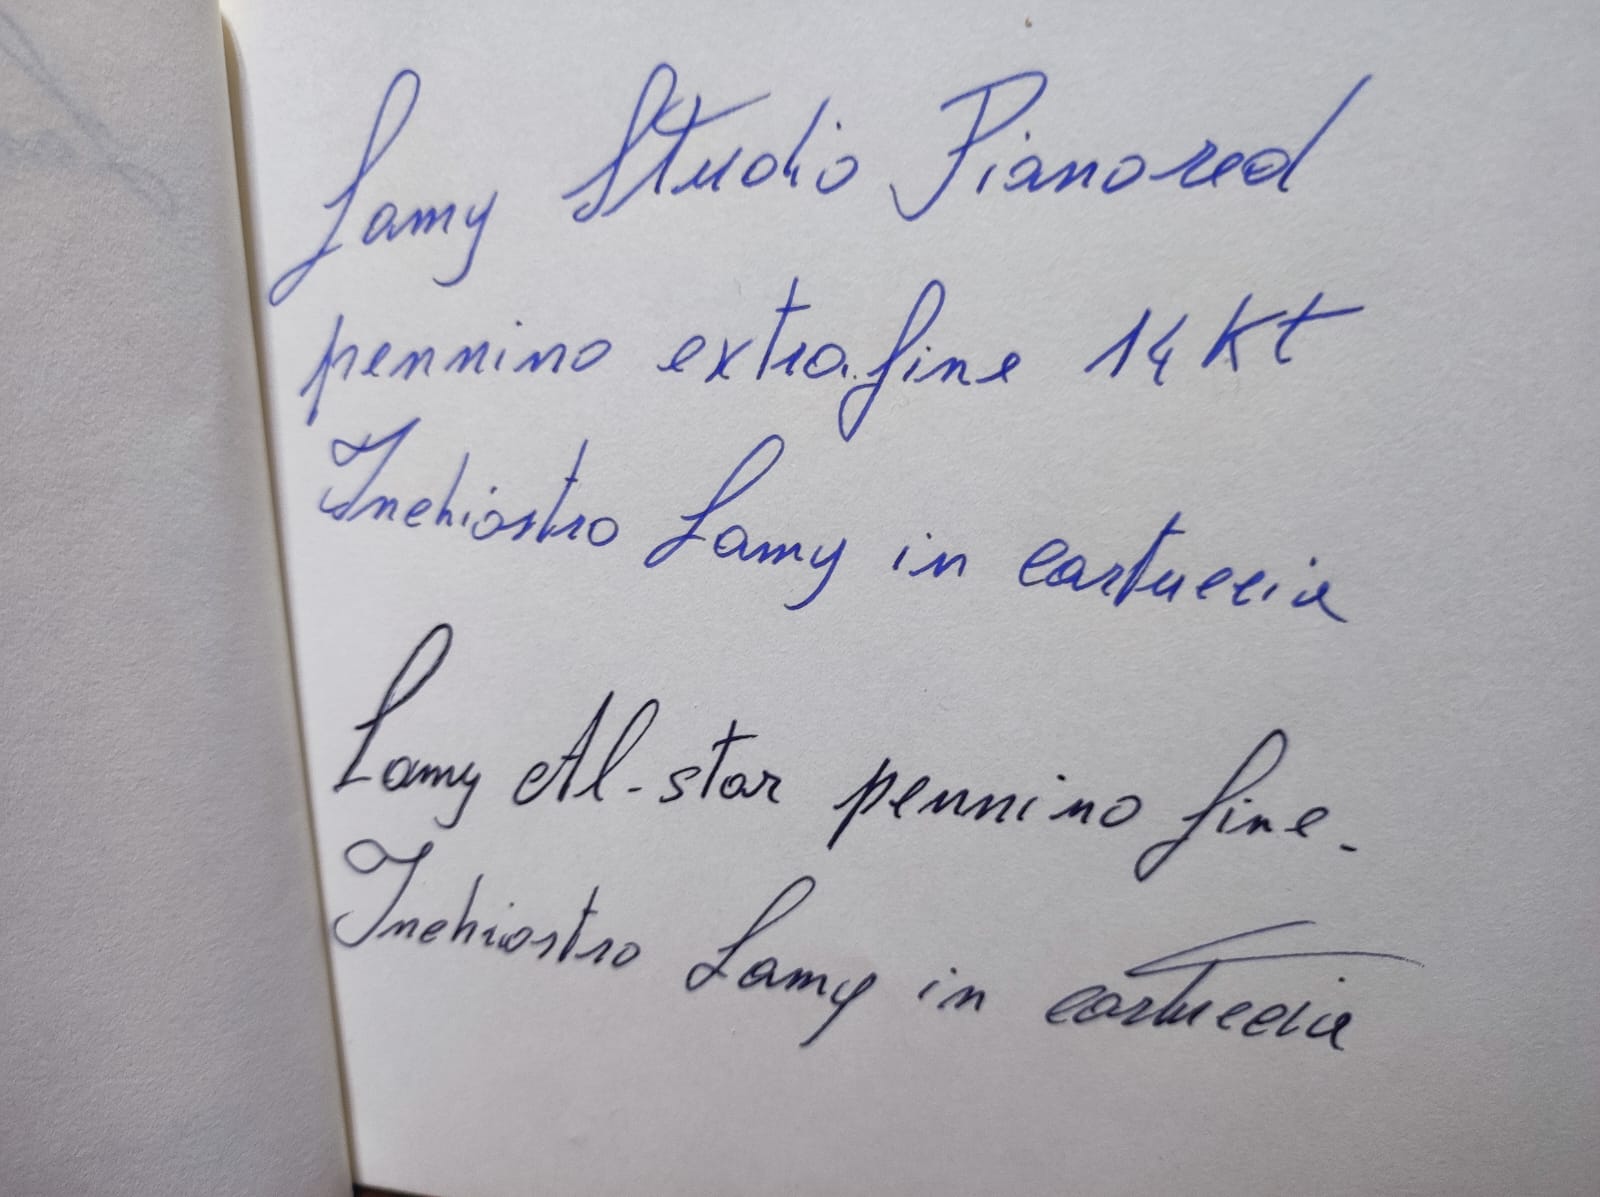 Lamy Studio Pianored
pennino extrafine 14 Kt
Inchiostro Lamy in cartuccia
Lamy Al-star pennino fine.
Inchiostro Lamy in cartuccia